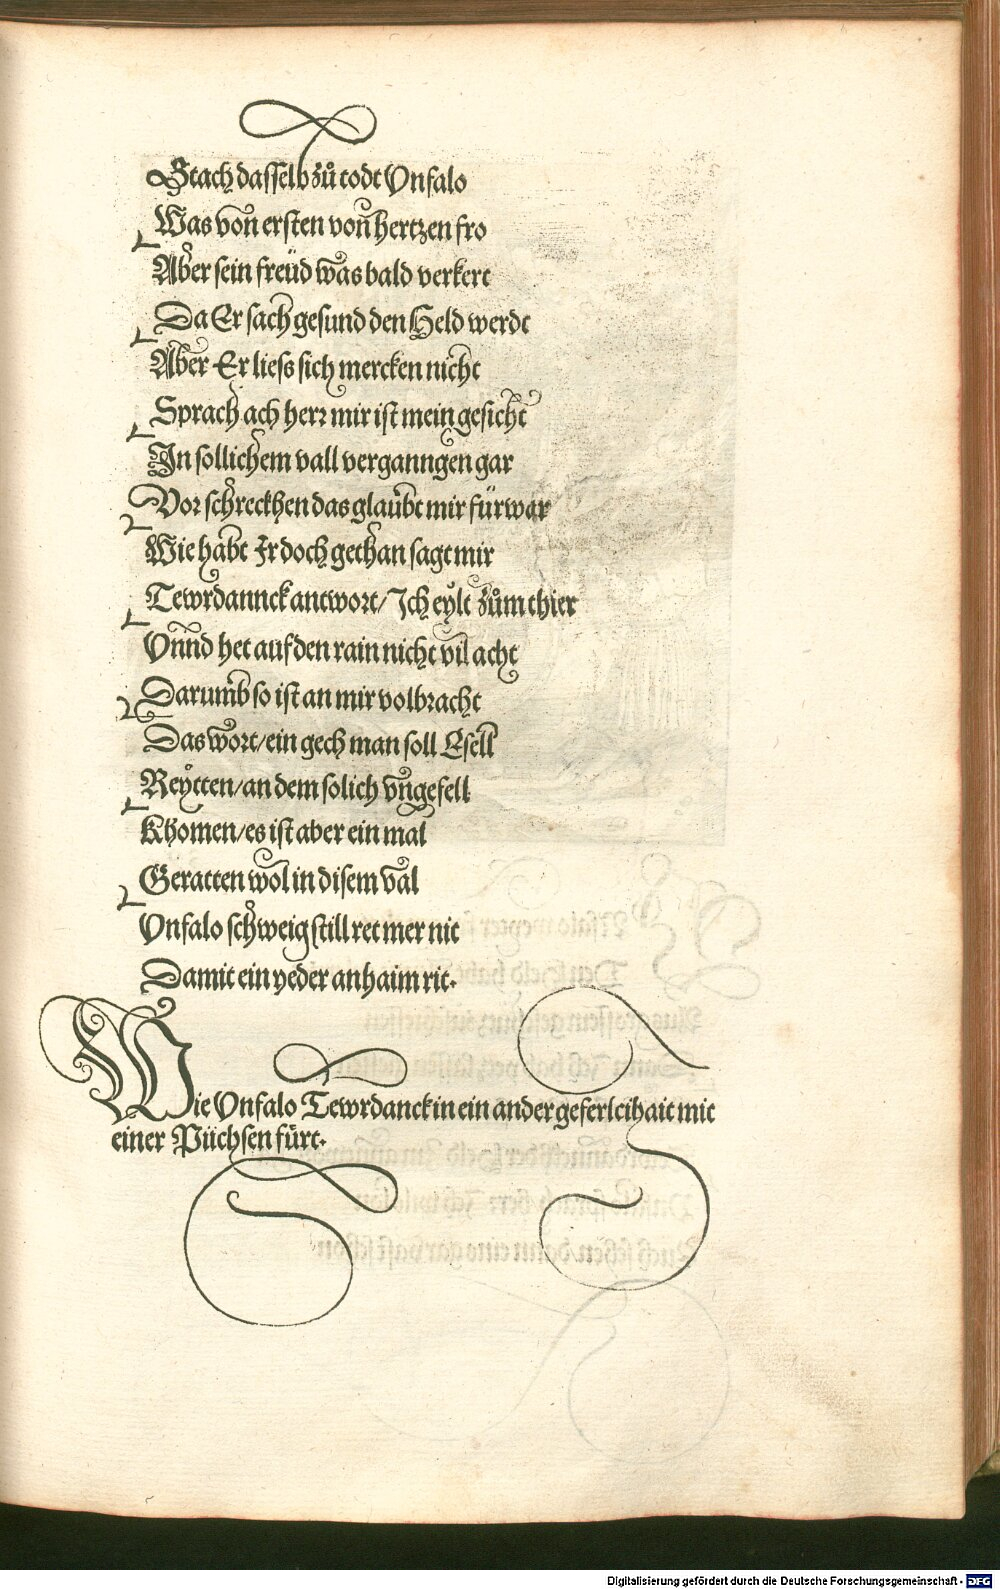 Stach dasselb zů todt Unfalo
Was von ersten von hertzen fro
Aber sein freüd was bald verkert
Da Er sach gesund den Held werdt
Aber Er liess sich mercken nicht
Sprach ach herr mir ist mein gesicht
In sollichem vall verganngen gar
Vor schreckhen das glaubt mir fürwar
Wie habt Ir doch gethan sagt mir
Tewrdannck antwort / Ich eylt zům thier
Unnd het auf den rain nicht vil acht
Darumb so ist an mir volbracht
Das wort / ein gech man soll Esell
Reytten / an dem solich ungefell
Khomen / es ist aber ein mal
Geratten wol in disem val
Unfalo schweig still ret mer nit
Damit ein yeder anhaim rit.
Wie Unfalo Tewrdanck in ein ander geferlcihait mit
einer Püchsen fürt.
Digitalisierung gefördert durch die Deutsche Forschungsgemeinschaft - DFG